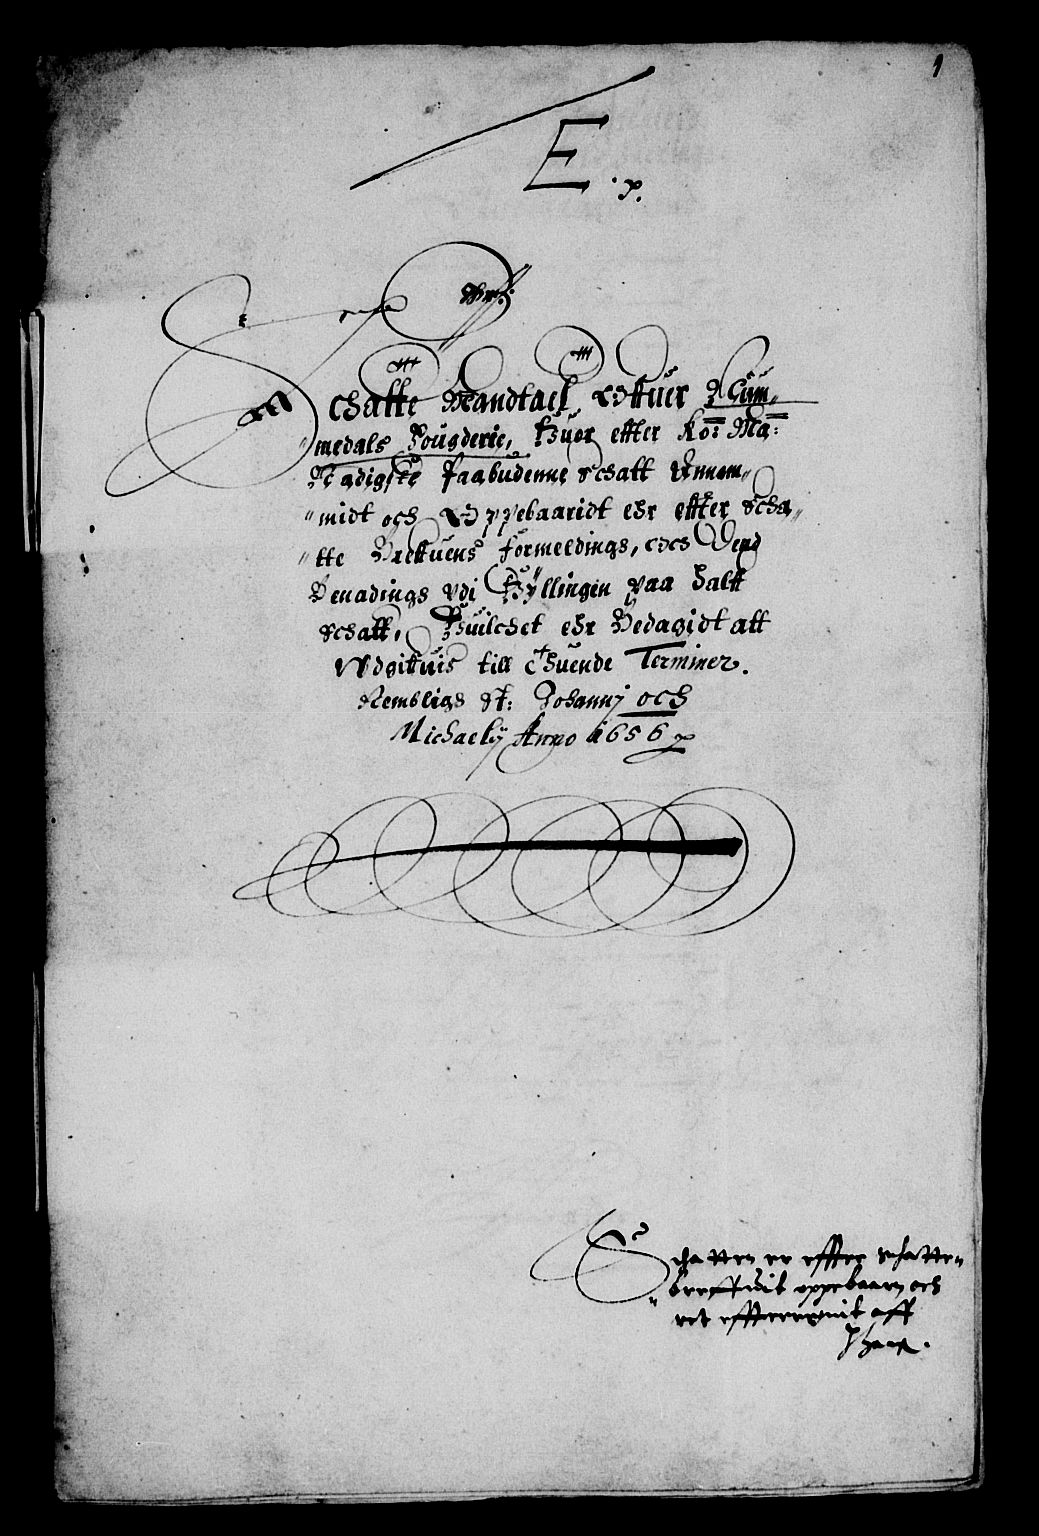 1
E
Schatte Mandtael Offuer Num-
medals Fougderie, Huor effter Ko: Ma:
Naadigste Paabudenne Schatt Annam-
midt och Oppebaaridt ehr effter Scha-
tte Breffuens formeldings, ehes Dend
Benadings vdi Hyllingen paa Halff
schatt, Huilchet ehr Bedagidt att
Vdgiffuis till Thuende Terminer.
Nembligs St: Johannj och
Michaelij Anno 1656
Schatten er effter schatte-
breffuit oppebaarn och
ret effterreignit aff